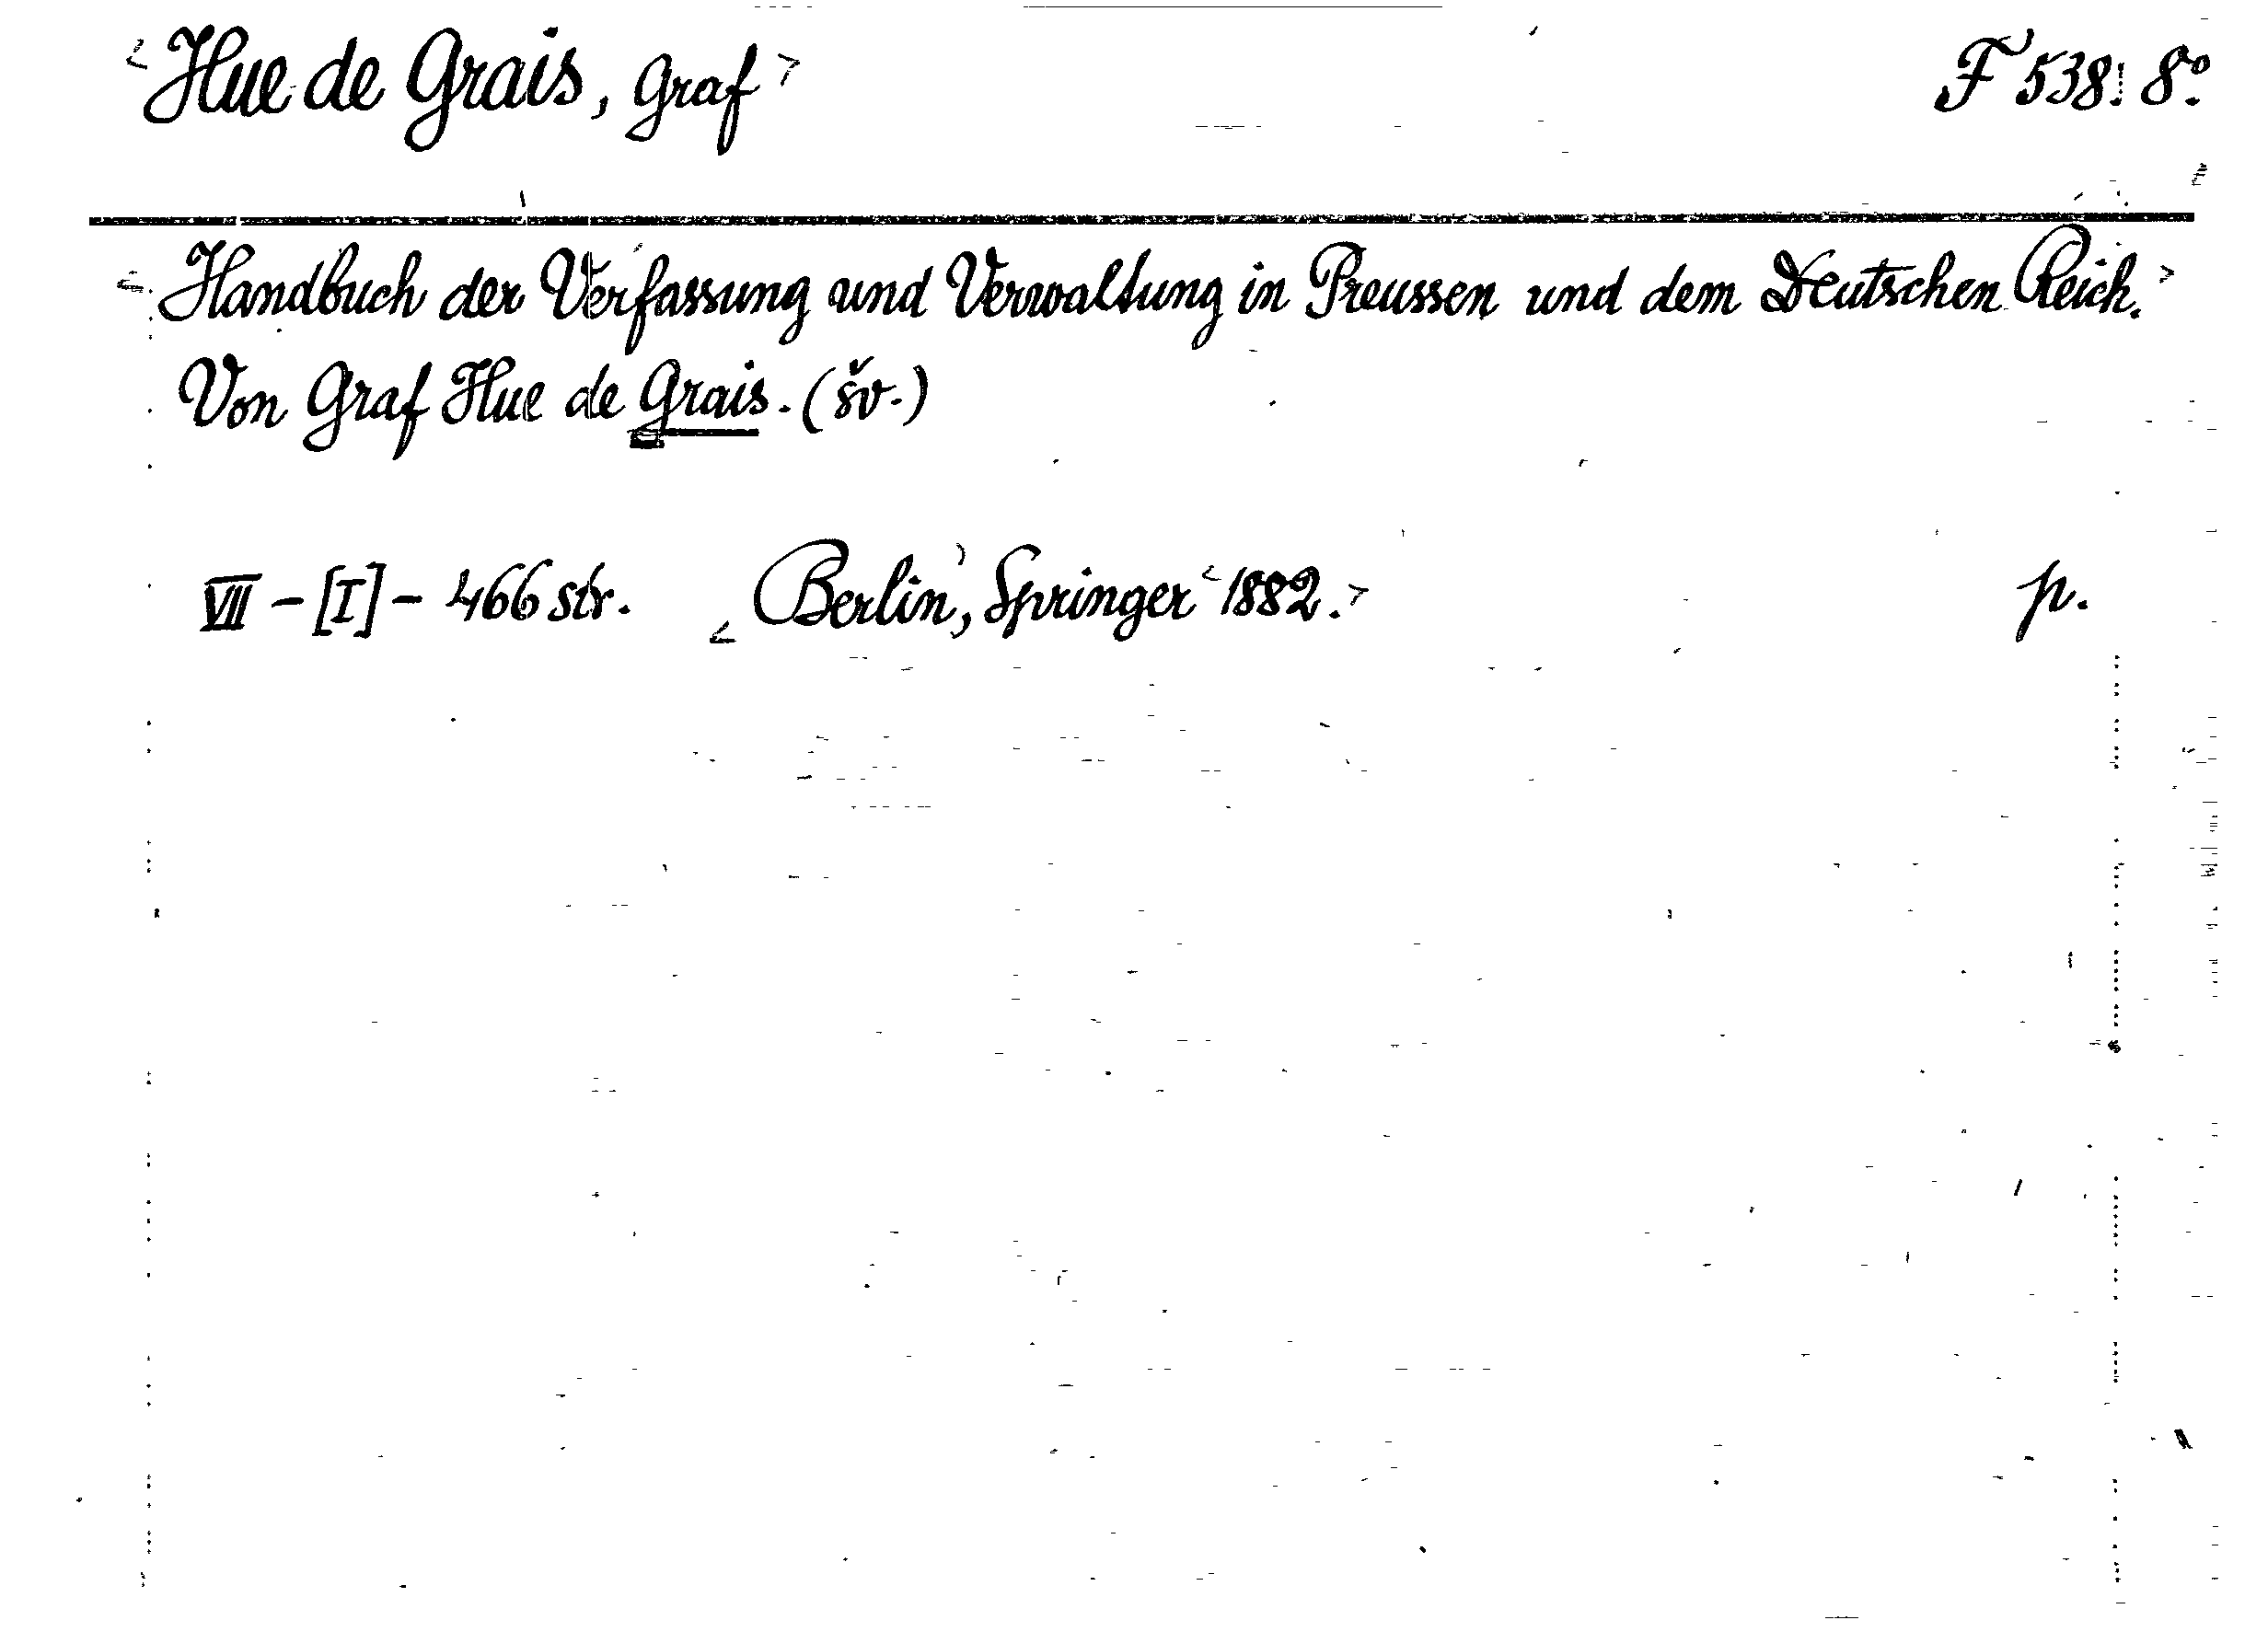 <Hue de Grais, Graf> F 538. 8º.
<Handbuch der Verfassung und Verwaltung in Preussen und dem Deutschen Reich.>
Von Graf Hue de Grais. (šv.)
VII - [I] - 466 str. <Berlin>, Springer <1882.> p.